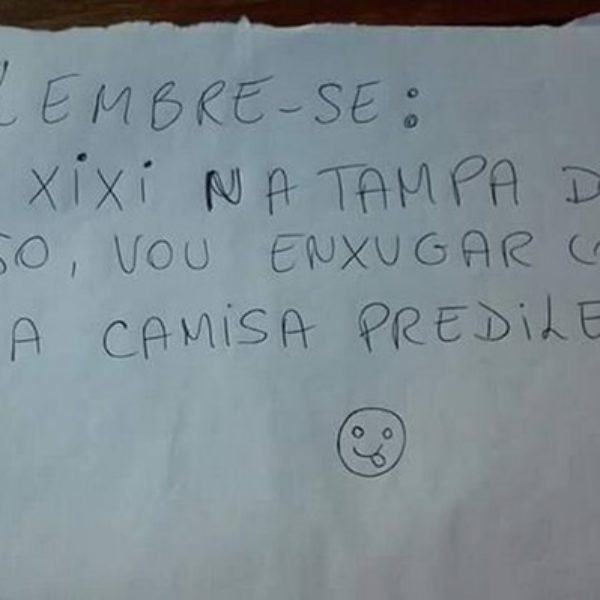 LEMBRE-SE:
XIXI NA TAMPA D
SO, VOU ENXUGAR
A CAMISA PREDILE